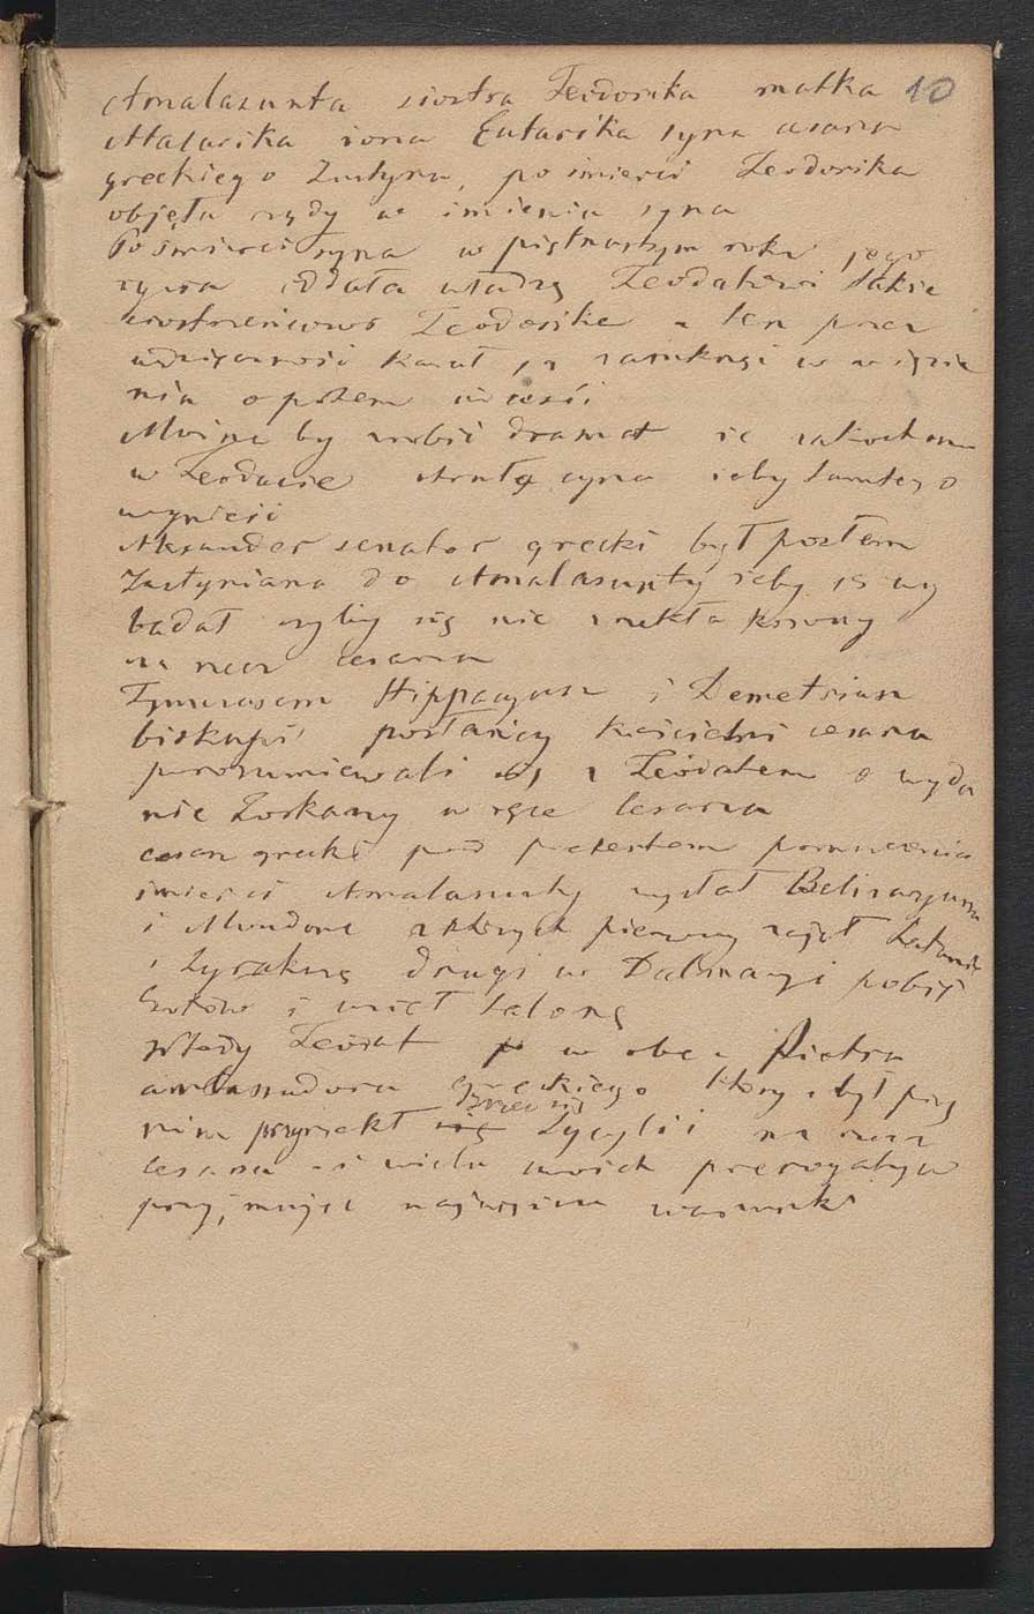 Amalazunta siostra Teodorika matka 10
Atalarika żona Eutarika syna cesarza
greckiego Justyna, po śmierci Teodorika
objęła rządy w imieniu syna
Po śmierci syna w piętnastym roku jego
życia oddała władzę Teodatowi także
siostrzeńcowi Teodorika a ten przez
wdzięczność kazał ją zamknąć w więzie
niu a potem udusić
Możne by zrobić dramat że zakochana
w Teodacie otruła syna żeby tamtego
wynieść
Aleksander senator grecki był posłem
Justyniana do Amalasunty żeby ją wy
badał czyliby się nie zrzekła korony
na rzecz cesarza
Tymczasem Hippacyusz i Demetriusz
biskupi posłańcy kościelni cesarza
porozumiewali się z Teodatem o wyda
nie Toskany w ręce Cesarza
cesarz grecki pod pretextem pomszczenia
śmierci Amalasunty wysłał Belizaryusza
i Mundona z których pierwszy zajął Katanię
i Syrakuzę drugi w Dalmacyi pobił
Gotów i wziął Salonę
Wtedy Teodat w obec Piotra
ambasadora greckiego który był przy
zrzec się
nim przyrzekł się Sycylii na rzecz
cesarza i wielu swoich prerogatyw
przyjmując najcięższe warunki